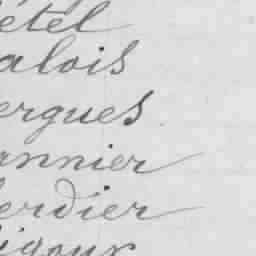 étel
alois
ergues
annier
erdier
igour